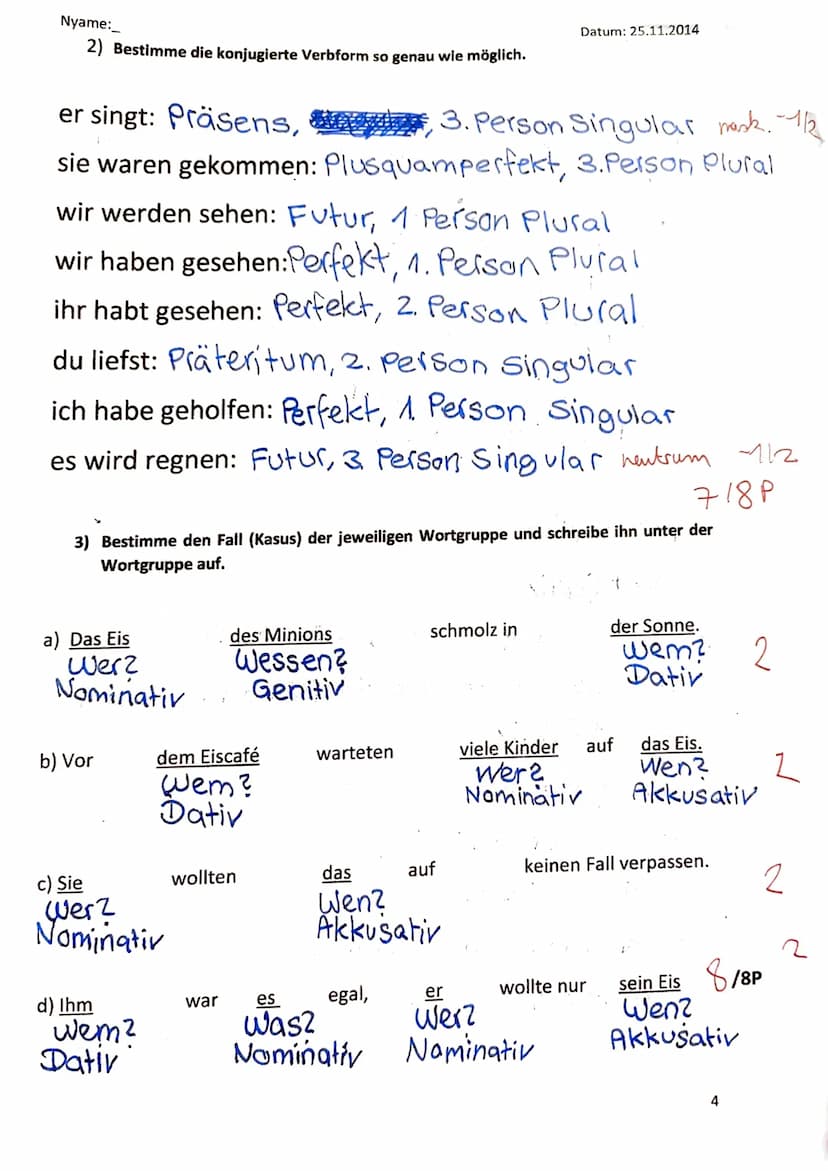 Nyame:_ Datum: 25.11.2014
2) Bestimme die konjugierte Verbform so genau wie möglich.
er singt: Präsens, , 3. Person Singular mask. -1/2
sie waren gekommen: Plusquamperfekt, 3. Person Plural
wir werden sehen: Futur, 1 Person Plural
wir haben gesehen: Perfekt, 1. Person Plural
ihr habt gesehen: Perfekt, 2. Person Plural
du liefst: Präteritum, 2. Person Singular
ich habe geholfen: Perfekt, 1. Person Singular
es wird regnen: Futur, 3 Person Singular neutrum -1/2
7/8P
3) Bestimme den Fall (Kasus) der jeweiligen Wortgruppe und schreibe ihn unter der
Wortgruppe auf.
a) Das Eis des Minions schmolz in der Sonne.
Wer? Wessen? Wem? 2
Nominativ Genitiv Dativ
b) Vor dem Eiscafé warteten viele Kinder auf das Eis.
Wem? Wer? Wen? 2
Dativ Nominativ Akkusativ
c) Sie wollten das auf keinen Fall verpassen. 2
Wer? Wen?
Nominativ Akkusativ
2
d) Ihm war es egal, er wollte nur sein Eis 8/8P
Wem? Was? Wer? Wen?
Dativ Nominativ Nominativ Akkusativ
4